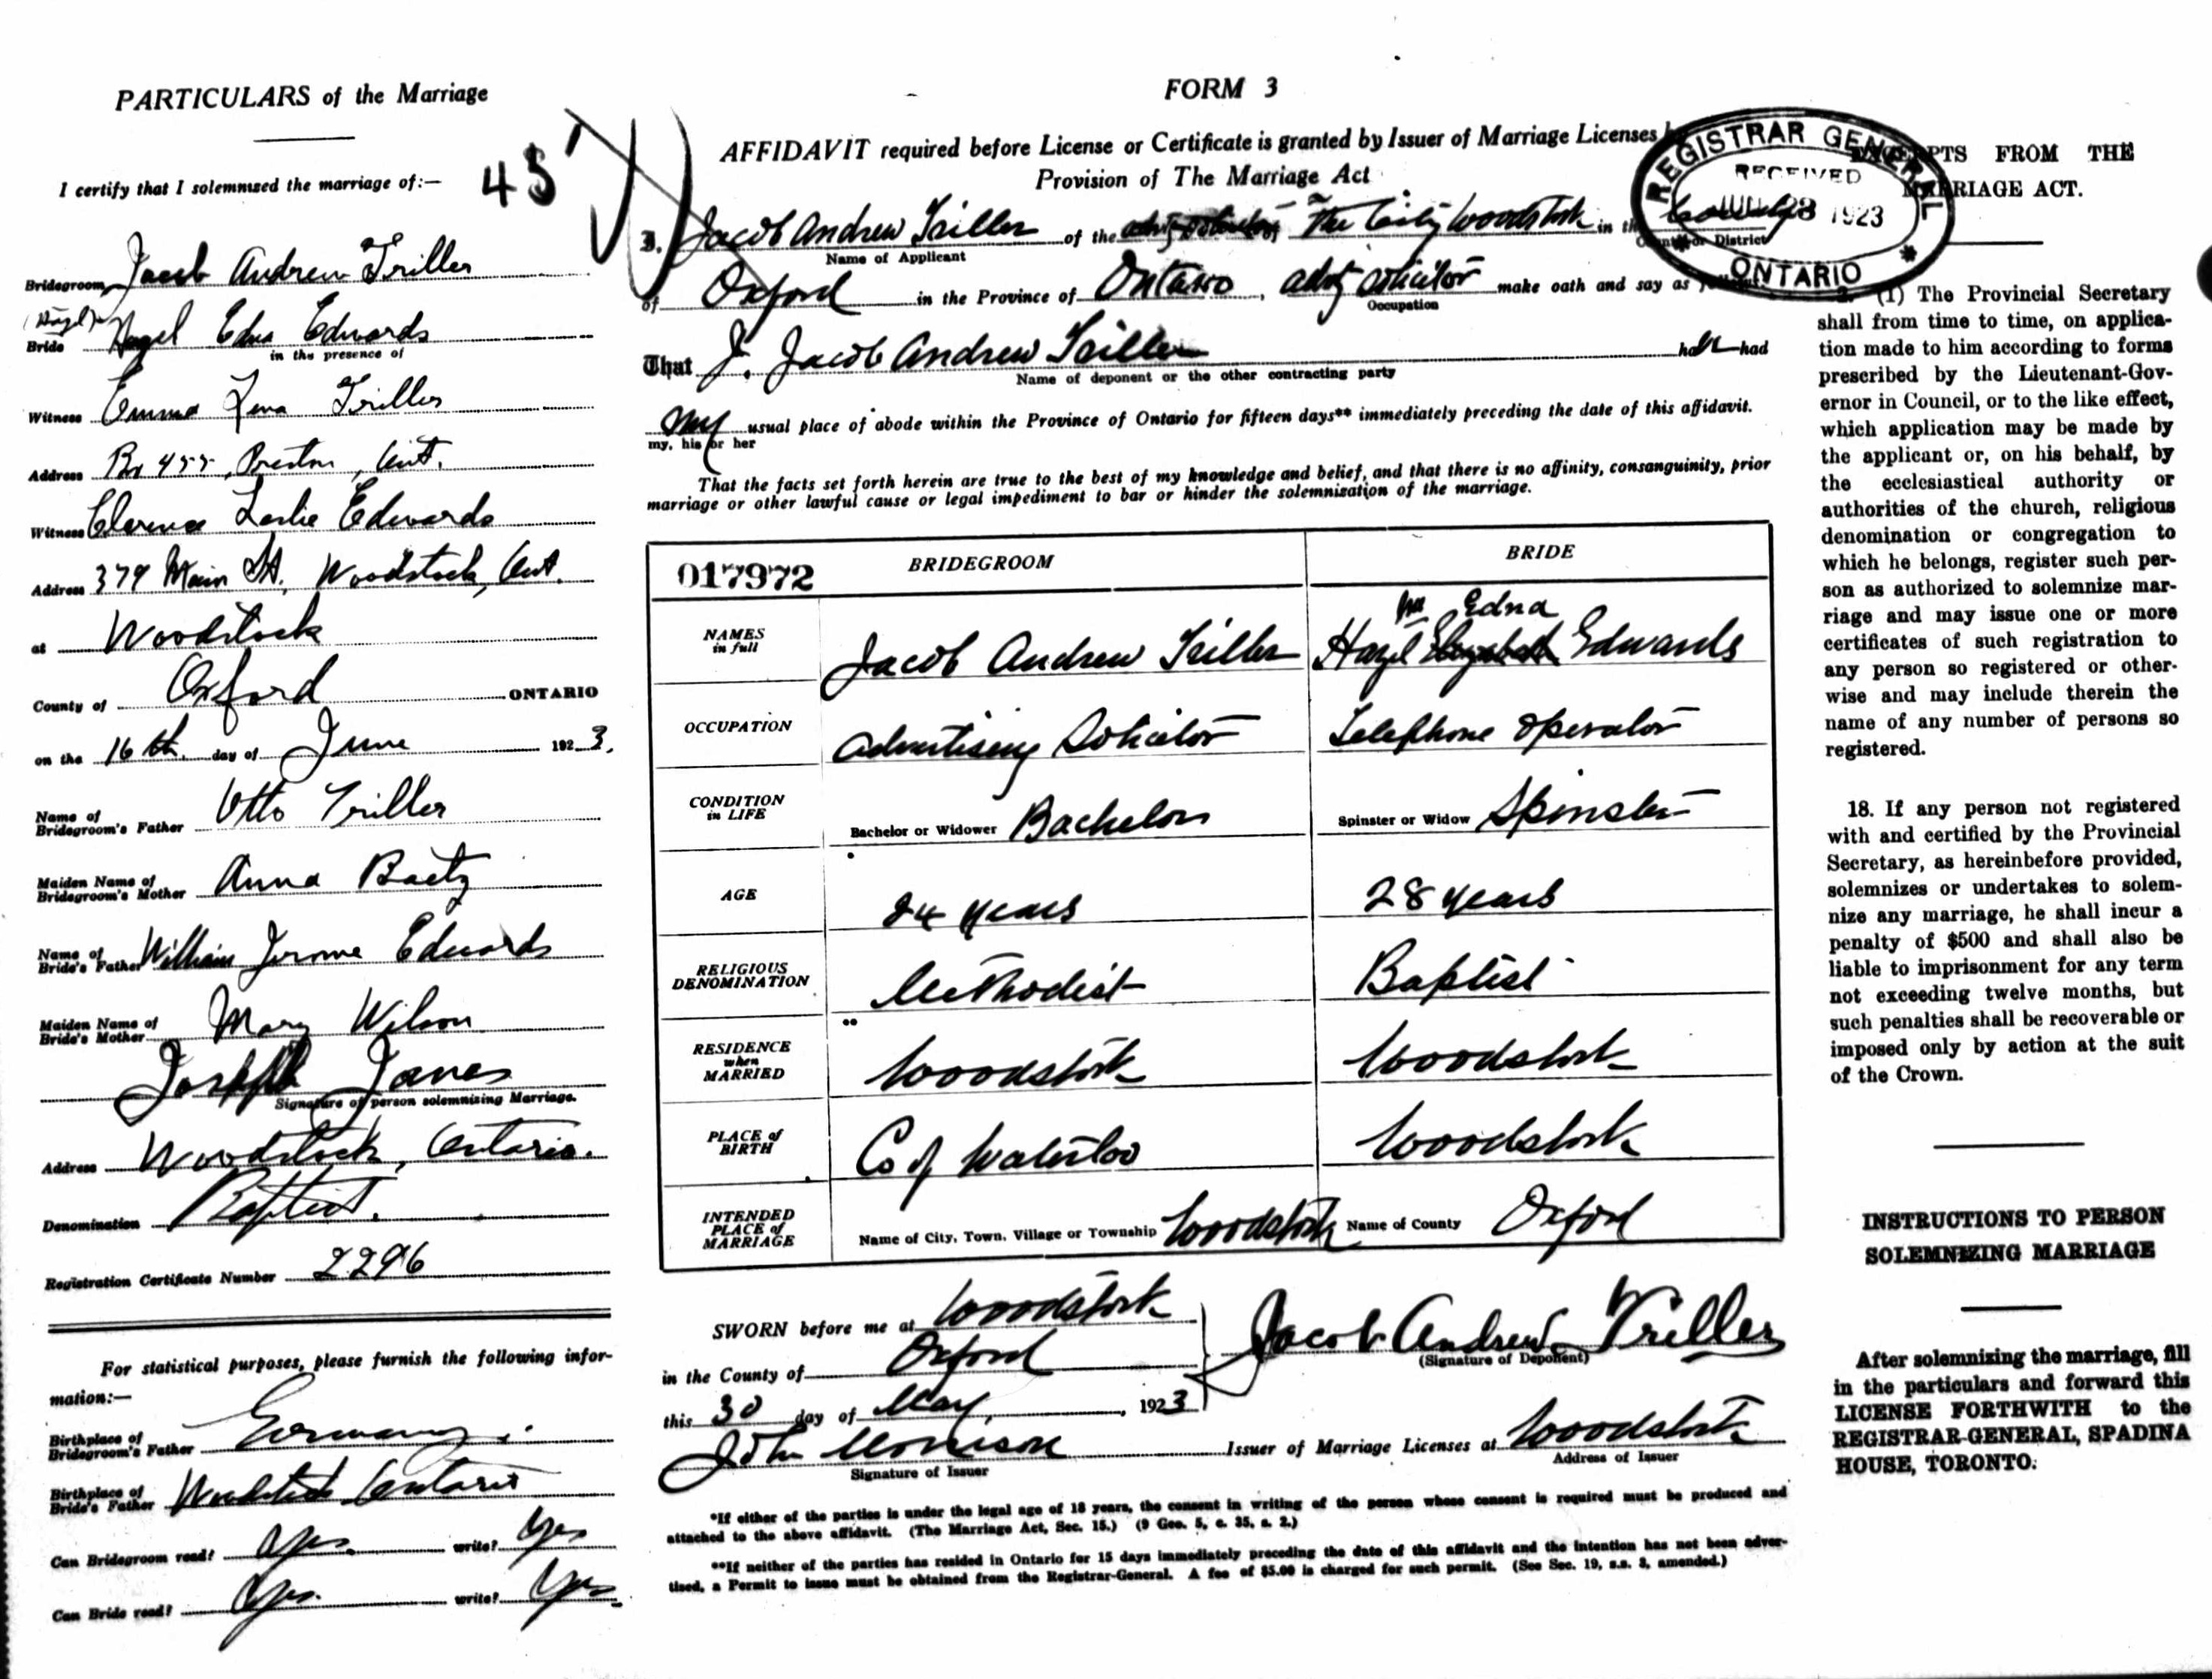 PARTICULARS of the Marriage
I certify that I solemnized the marriage of:—
Bridegroom Jacob Andrew Triller
(Hazel)
Bride Hazel Edna Edwards
in the presence of
Witness Emma Lena Triller
Address Bx 455, Preston, Ont.
Witness Clarence Leslie Edwards
Address 379 Main St. Woodstock, Ont.
at Woodstock
County of Oxford ONTARIO
on the 16th day of June 1923.
Name of
Bridegroom's Father Otto Triller
Maiden Name of
Bridegroom's Mother Anna Baetz
Name of
Bride's Father William Jerome Edwards
Maiden Name of
Bride's Mother Mary Wilson
Joseph Janes
Signature of person solemnizing Marriage.
Address Woodstock, Ontario.
Denomination Baptist.
Registration Certificate Number 2296
For statistical purposes, please furnish the following infor-
mation:—
Birthplace of
Bridegroom's Father Germany.
Birthplace of
Bride's Father Woodstock Ontario
Can Bridegroom read? Yes. write? Yes
Can Bride read? Yes. write? Yes
FORM 3
AFFIDAVIT required before License or Certificate is granted by Issuer of Marriage Licenses
Provision of The Marriage Act
I, Jacob Andrew Triller of the The City Woodstock in the County
Name of Applicant County or District
of Oxford in the Province of Ontario, advtg solicitor make oath and say as
Occupation
That I, Jacob Andrew Triller have had
Name of deponent or the other contracting party
my usual place of abode within the Province of Ontario for fifteen days** immediately preceding the date of this affidavit.
my, his or her
That the facts set forth herein are true to the best of my knowledge and belief, and that there is no affinity, consanguinity, prior
marriage or other lawful cause or legal impediment to bar or hinder the solemnization of the marriage.
017972 BRIDEGROOM BRIDE
NAMES in full Jacob Andrew Triller Hazel Edna Edwards
OCCUPATION Advertising Solicitor Telephone operator
CONDITION in LIFE Bachelor or Widower Bachelor Spinster or Widow Spinster
AGE 24 years 28 years
RELIGIOUS DENOMINATION Methodist Baptist
RESIDENCE when MARRIED Woodstock Woodstock
PLACE of BIRTH Co of Waterloo Woodstock
INTENDED PLACE of MARRIAGE Name of City, Town, Village or Township Woodstock Name of County Oxford
SWORN before me at Woodstock
in the County of Oxford
this 30 day of May, 1923
Jacob Andrew Triller
(Signature of Deponent)
John Morrison Issuer of Marriage Licenses at Woodstock
Signature of Issuer Address of Issuer
*If either of the parties is under the legal age of 18 years, the consent in writing of the person whose consent is required must be produced and
attached to the above affidavit. (The Marriage Act, Sec. 15.) (9 Geo. 5, c. 35, s. 2.)
**If neither of the parties has resided in Ontario for 15 days immediately preceding the date of this affidavit and the intention has not been adver-
tised, a Permit to issue must be obtained from the Registrar-General. A fee of $5.00 is charged for such permit. (See Sec. 19, s.s. 3, amended.)
REGISTRAR GENERAL
RECEIVED
1923
ONTARIO
EXCERPTS FROM THE
MARRIAGE ACT.
2. (1) The Provincial Secretary
shall from time to time, on applica-
tion made to him according to forms
prescribed by the Lieutenant-Gov-
ernor in Council, or to the like effect,
which application may be made by
the applicant or, on his behalf, by
the ecclesiastical authority or
authorities of the church, religious
denomination or congregation to
which he belongs, register such per-
son as authorized to solemnize mar-
riage and may issue one or more
certificates of such registration to
any person so registered or other-
wise and may include therein the
name of any number of persons so
registered.
18. If any person not registered
with and certified by the Provincial
Secretary, as hereinbefore provided,
solemnizes or undertakes to solem-
nize any marriage, he shall incur a
penalty of $500 and shall also be
liable to imprisonment for any term
not exceeding twelve months, but
such penalties shall be recoverable or
imposed only by action at the suit
of the Crown.
INSTRUCTIONS TO PERSON
SOLEMNIZING MARRIAGE
After solemnizing the marriage, fill
in the particulars and forward this
LICENSE FORTHWITH to the
REGISTRAR-GENERAL, SPADINA
HOUSE, TORONTO.